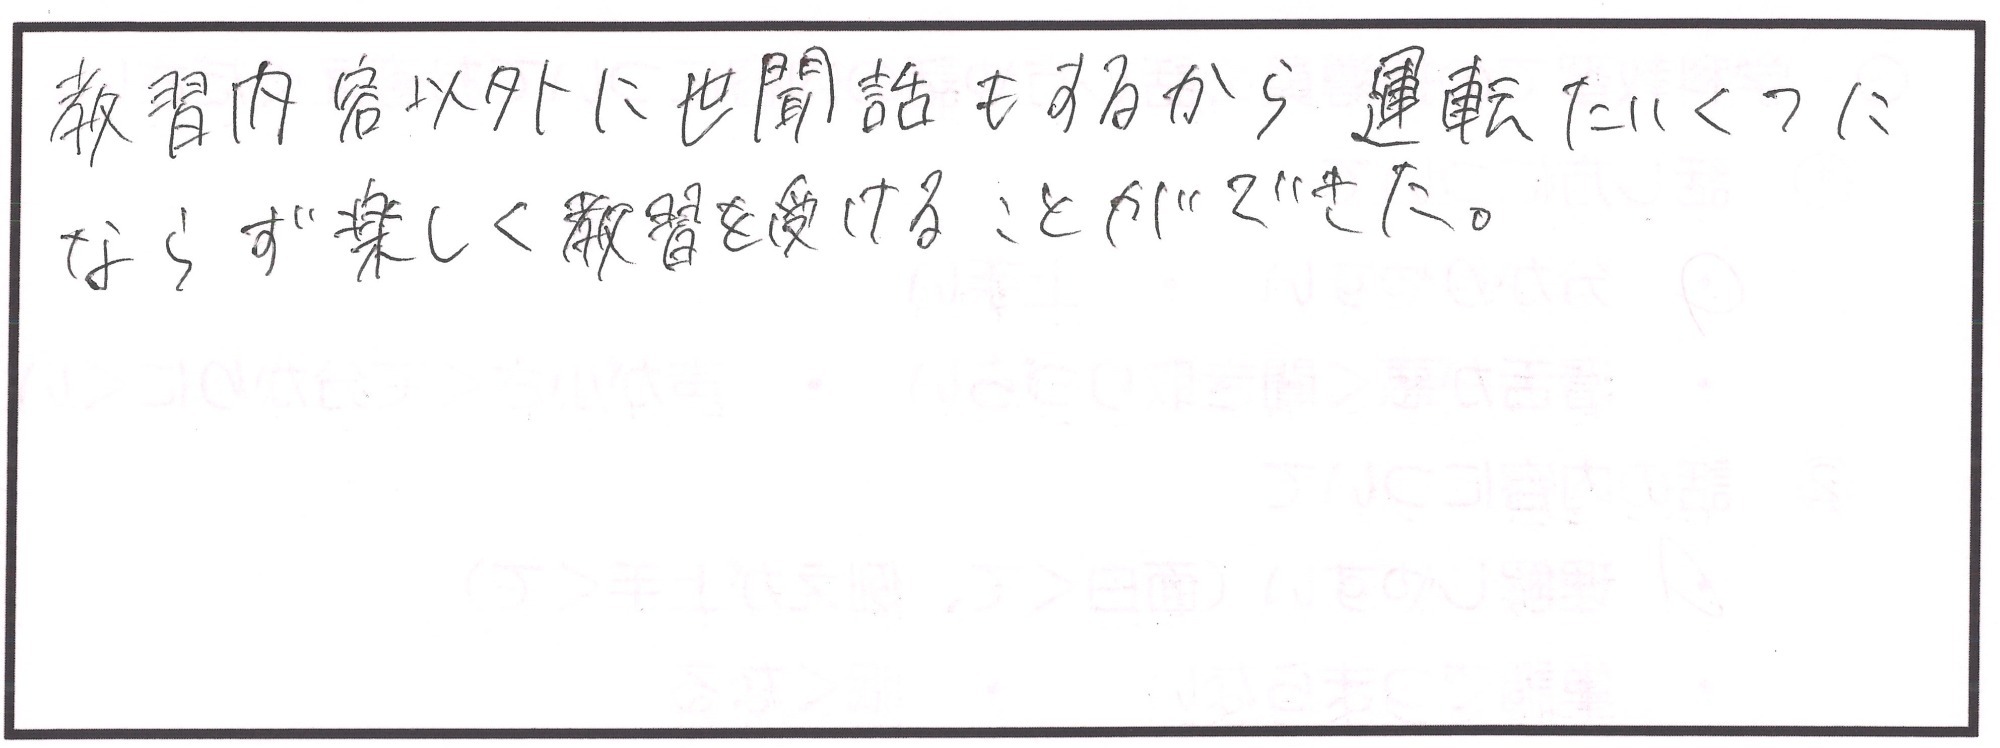 教習内容以外に世間話もするから運転たいくつに
ならず楽しく教習を受けることができた。